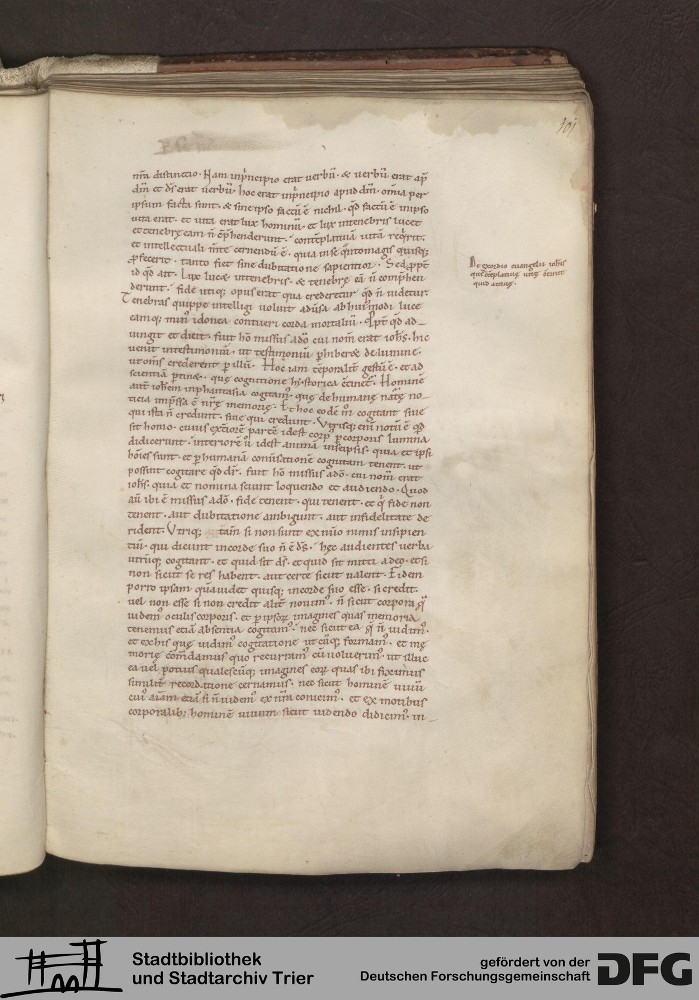 101
nr̄a distinctio. Nam inp̄ncipio erat uerbū. & uerbū erat ap̄
dm̄ et ds̄ erat uerbū. hoc erat inp̄ncipio apud dm̄. om̄ia per
ipsum facta sunt. & sine ipso factū ē nichil. qd̄ factū ē inipso
uita erat. et uita erat lux hominū. et lux intenebris lucet
et tenebre eam n̄ cōp̄henderunt. contēplatiuā uitā req̄rit.
et intellectuali m̄te cernendū ē. qua inse quātomagis quisq;
p̄fecerit. tanto fiet sine dubitatione sapientior. Sed p̄pt̄
id qd̄ ait. Lux lucet intenebris. & tenebre eā n̄ cōmp̄hen
derunt. fide utiq; opus erat qua crederetur qd̄ n̄ uidetur.
Tenebras quippe intelligi uoluit aduersa ab hui'modi luce
eamq; min' idonea contueri corda mortaliū. Ppt̄ qd̄ ad
iungit et dicit. fuit hō missus adō cui nom̄ erat ioh̄s. hic
uenit intestimoniū. ut testimoniū p̄hiberet de lumine.
ut om̄s crederent p̄ illū. Hoc iam tēporalit̄ gestū ē. et ad
scientiā p̄tinet. que cognitione historica c̄tinet̄. Hominē
aut̄ ioh̄em inphantasia cogitam'. que de humane nat̄e no
ticia imp̄ssa ē nr̄e memorie. Et hoc eodē m̄ cogitant siue
qui ista n̄ credunt. siue qui credunt. Vtrisq; eni notū ē qd̄
sit homo. cuius ext̄iorē partē idest corp' p̄ corporis lumina
didicerunt. interiorē u̅ idest animā inseipsis. quia et ipsi
hōies sunt. et p̄ humanā conu̅sationē cognitam tenent. ut
possint cogitare qd̄ dr̄. fuit hō missus adō. cui nom̄ erat
ioh̄s. quia et nomina sciunt loquendo et audiendo. Quod
aū ibi ē missus adō. fide tenent. qui tenent. et q̄ fide non
tenent. aut dubitatione ambigunt. aut infidelitate de
rident. Vtriq; tam̄ si non sunt ex nūo nimis insipien
tiū. qui dicunt incorde suo n̄ ē ds̄. hec audientes uerba
utrūq; cogitant. et quid sit ds̄. et quid sit mitti a deo. etsi
non sicut se res habent. aut certe sicut ualent. Fidem
porro ipsam quā uidet quisq; incorde suo esse. si credit.
uel non esse si non credit alit̄ nouim'. n̄ sicut corpora q̄
uidem' oculis corporis. et p̄ ipsoꝝ imagines quas memoria
tenemus etiā absentia cogitam'. nec sicut ea q̄ n̄ uidim'.
et ex his que uidim' cogitatione ut cūq; formam'. et me
morie cōmdamus quo recurram' cū uoluerim'. ut illic
ea uel potius qualescūq; imagines eoꝝ quas ibi fixeimus
similit̄ recordatione cernamus. nec sicut hominē uiuū
cui' aīam etiā si n̄ uidem' ex nr̄a coniecim'. et ex motibus
corporalib; hominē uiuum sicut uidendo didicim'. in
De exordio euangelii ioh̄is
quid c̄templatiue uite c̄ueniat
quid actiue.
Stadtbibliothek
und Stadtarchiv Trier
gefördert von der
Deutschen Forschungsgemeinschaft
DFG